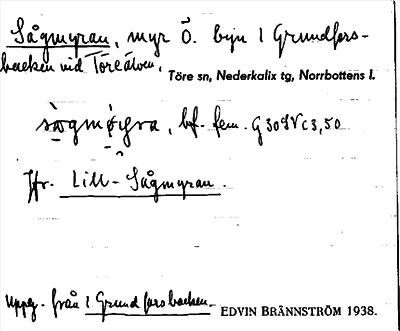 Sågmyran, myr Ö. byn i Grundfors-
backen vid Töreälven.
Töre sn, Nederkalix tg, Norrbottens l.
bf. fem. G30 c3,50
Jfr. Lill-Sågmyran.
Uppg. från i Grundforsbacken.
EDVIN BRÄNNSTRÖM 1938.